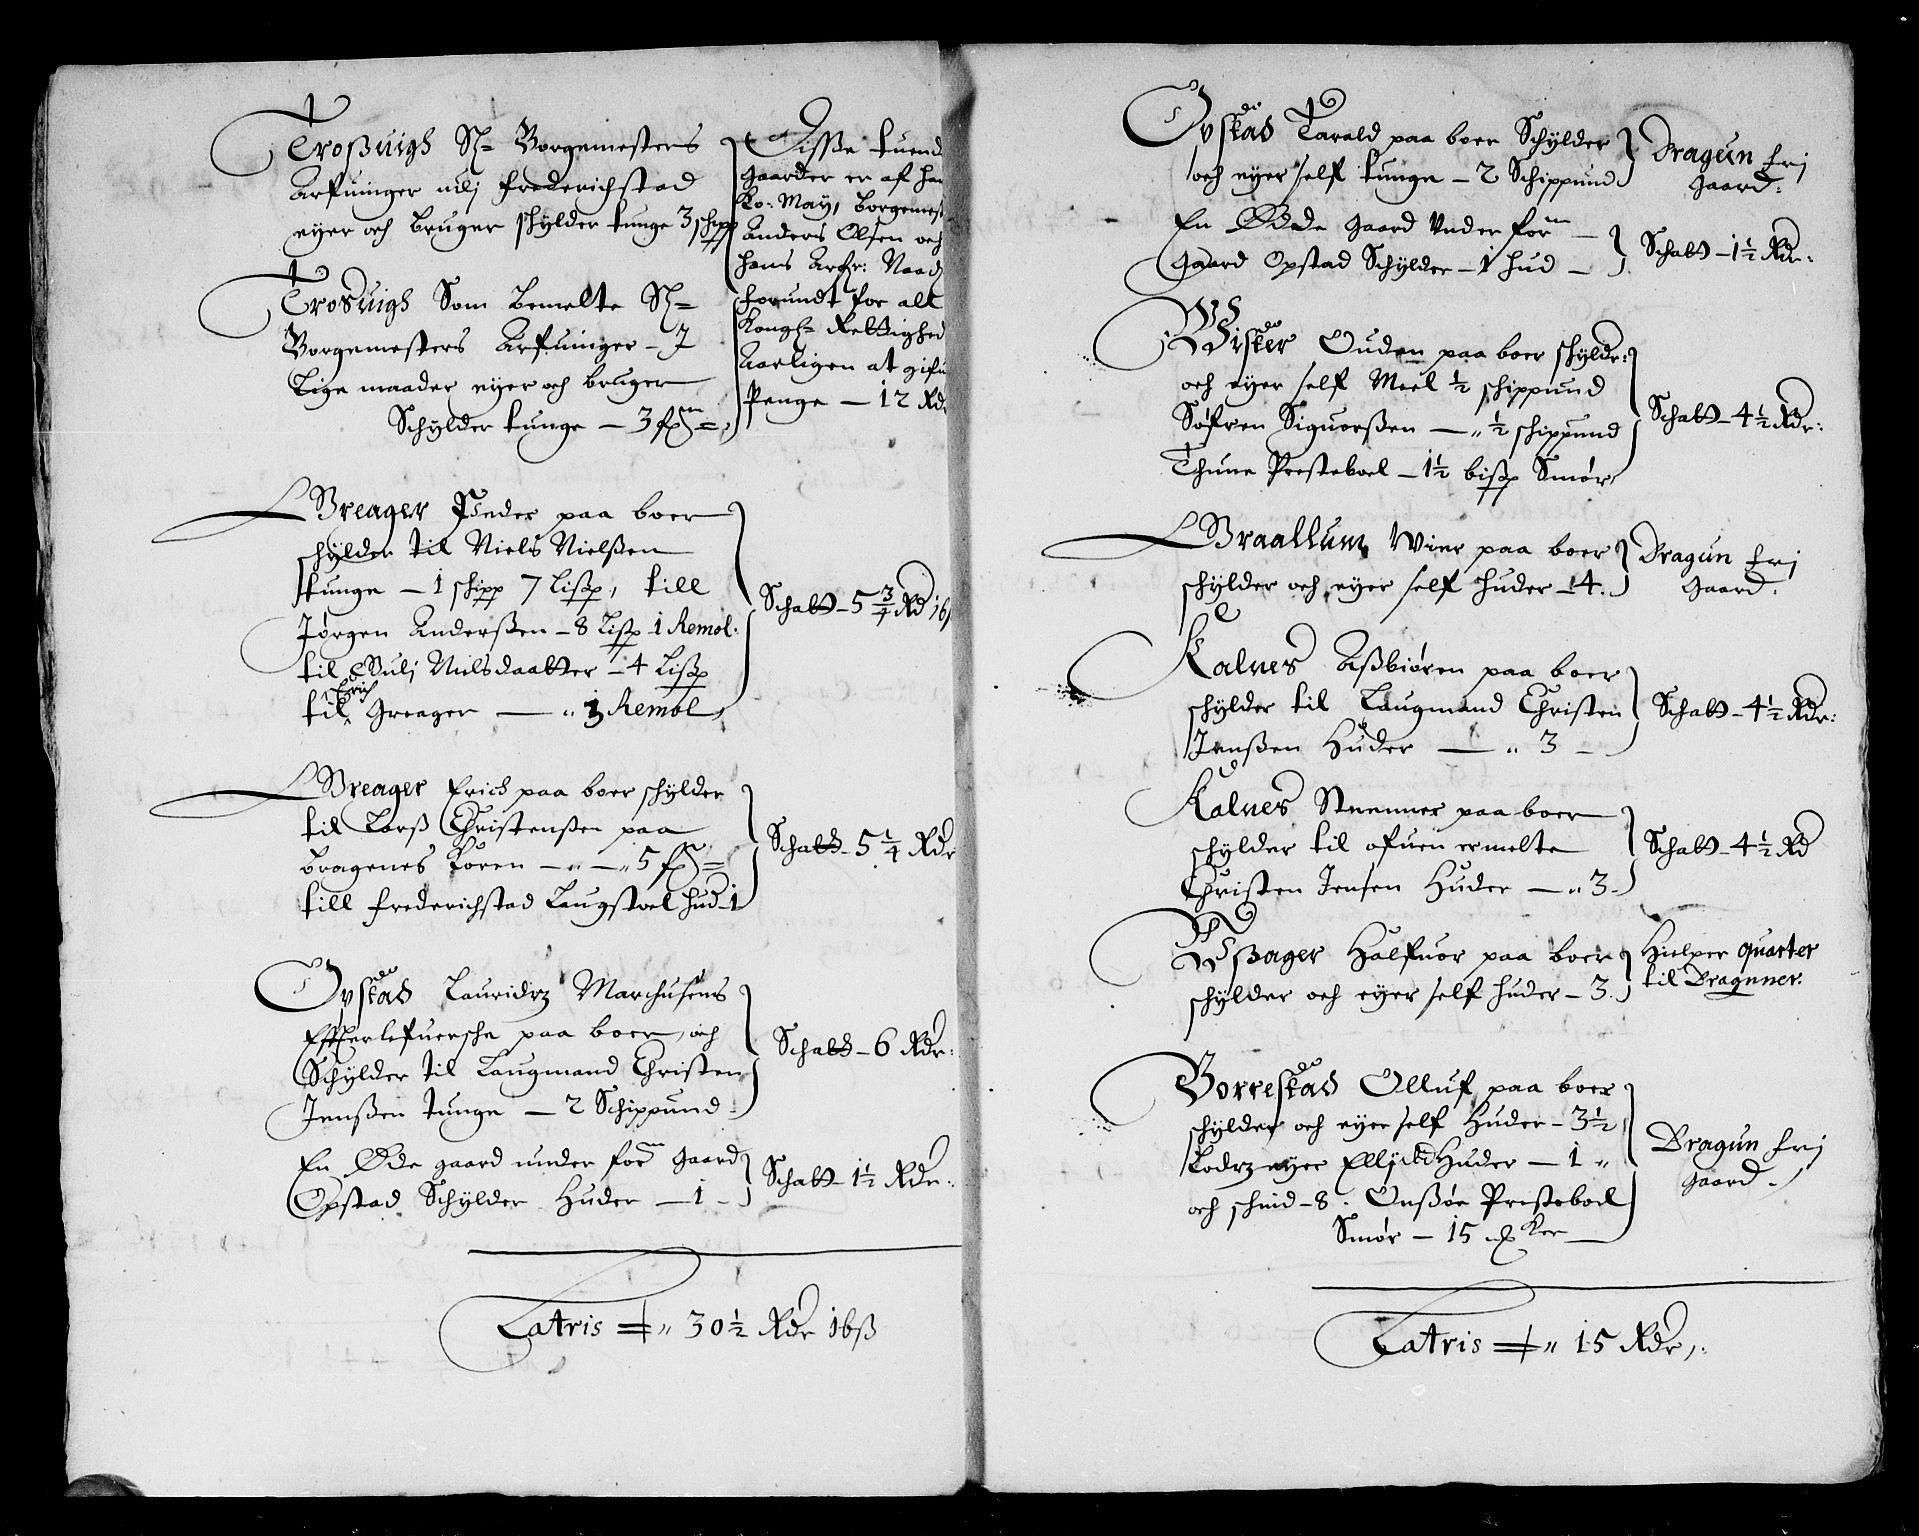 Troßuigh Sl= Borgemesters
Arfuinger udj Frederichstad
eyer och bruger schylder tunge 3 schipp
Trosuigh Som bemelte Sl=
Borgemesters Arfuinger – J
lige maader eyer och bruger
Schylder tunge – 3
Disse tuende
gaarder er af
Ko: May, borgemest
Anders Olsen och
hans Arfr: Naad
forundt for alt
Kongl= Rettighed
Aarligen at gifu
Penge – 12 Rd
Greager Peder paa boer
schylder til Niels Nielßen
tunge – 1 schipp 7 Lißp, till
Jørgen Anderßen – 8 Lißp 1 Remol:
til Gulj Nielsdaatter – 4 Lißp
til Erich Greager – " 3 Remol
Schatt – 5 3/4 Rd 16
Greager Erich paa boer schylder
til Larß Christenßen paa
bragenes Koren – " – " 5
till Frederichstad Laugstoel hud 1
Schatt – 5 1/4 Rdr
Opstad Lauridz Marchusens
Efterlefuersche paa boer, och
Schylder til Laugmand Christen
Jenßen tunge – 2 Schippund
Schatt – 6 Rdr:
En Øde gaard under for^m gaard
Opstad Schylder Huder – 1 –
Schatt – 1½ Rdr:
Latris " 30½ Rdr 16ß
Opstad Tarald paa boer Schylder
och eyer self tunge – 2 Schippund
Dragun frj
gaard:
En Øde gaard under for^m
gaard Opstad Schylder – 1 hud –
Schatt – 1½ Rdr:
Wister Ouden paa boer schyldr:
och eyer self Meel ½ schippund
Søfren Siguorßen – " ½ schippund
Thune Prestebol – 1½ bißp Smør
Schatt – 4½ Rdr:
Braallum Wier paa boer
schylder och eyer self huder – 4.
Dragun frj
gaard.
Kalnes Aßbiøren paa boer
schylder til Laugmand Christen
Jenßen Huder – " 3 –
Schatt – 4½ Rdr:
Kalnes Stenner paa boer
schylder til ofuen ermelte
Christen Jensen Huder – " 3 –
Schatt – 4½ Rd
Wßager Halfuor paa boer
schylder och eyer self huder – 3.
Hielper quarter
til Dragunner.
Borrestad Olluf paa boer
schylder och eyer self Huder – 3½
Huder – 1 "
och schind – 8. Onßøe Prestebol
Smør – 15
Dragun frj
gaard.
Latris " 15 Rdr,.